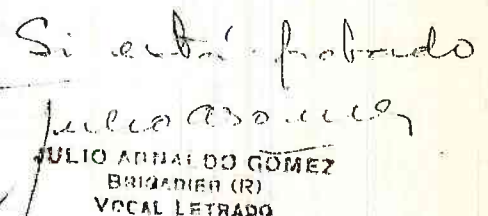 Si está probado
JULIO ARNALDO GOMEZ
BRIGADIER (R)
VOCAL LETRADO